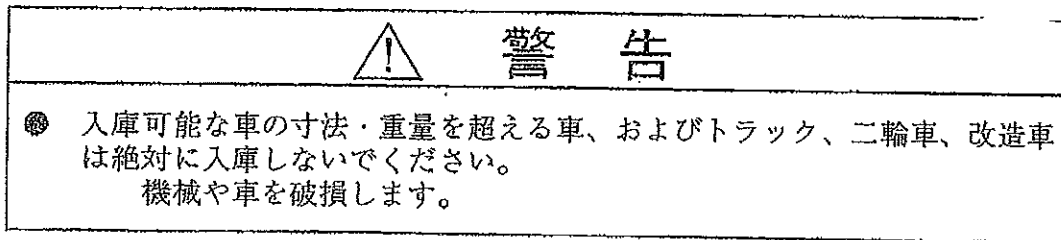 警告
入庫可能な車の寸法・重量を超える車、およびトラック、二輪車、改造車
は絶対に入庫しないでください。
機械や車を破損します。